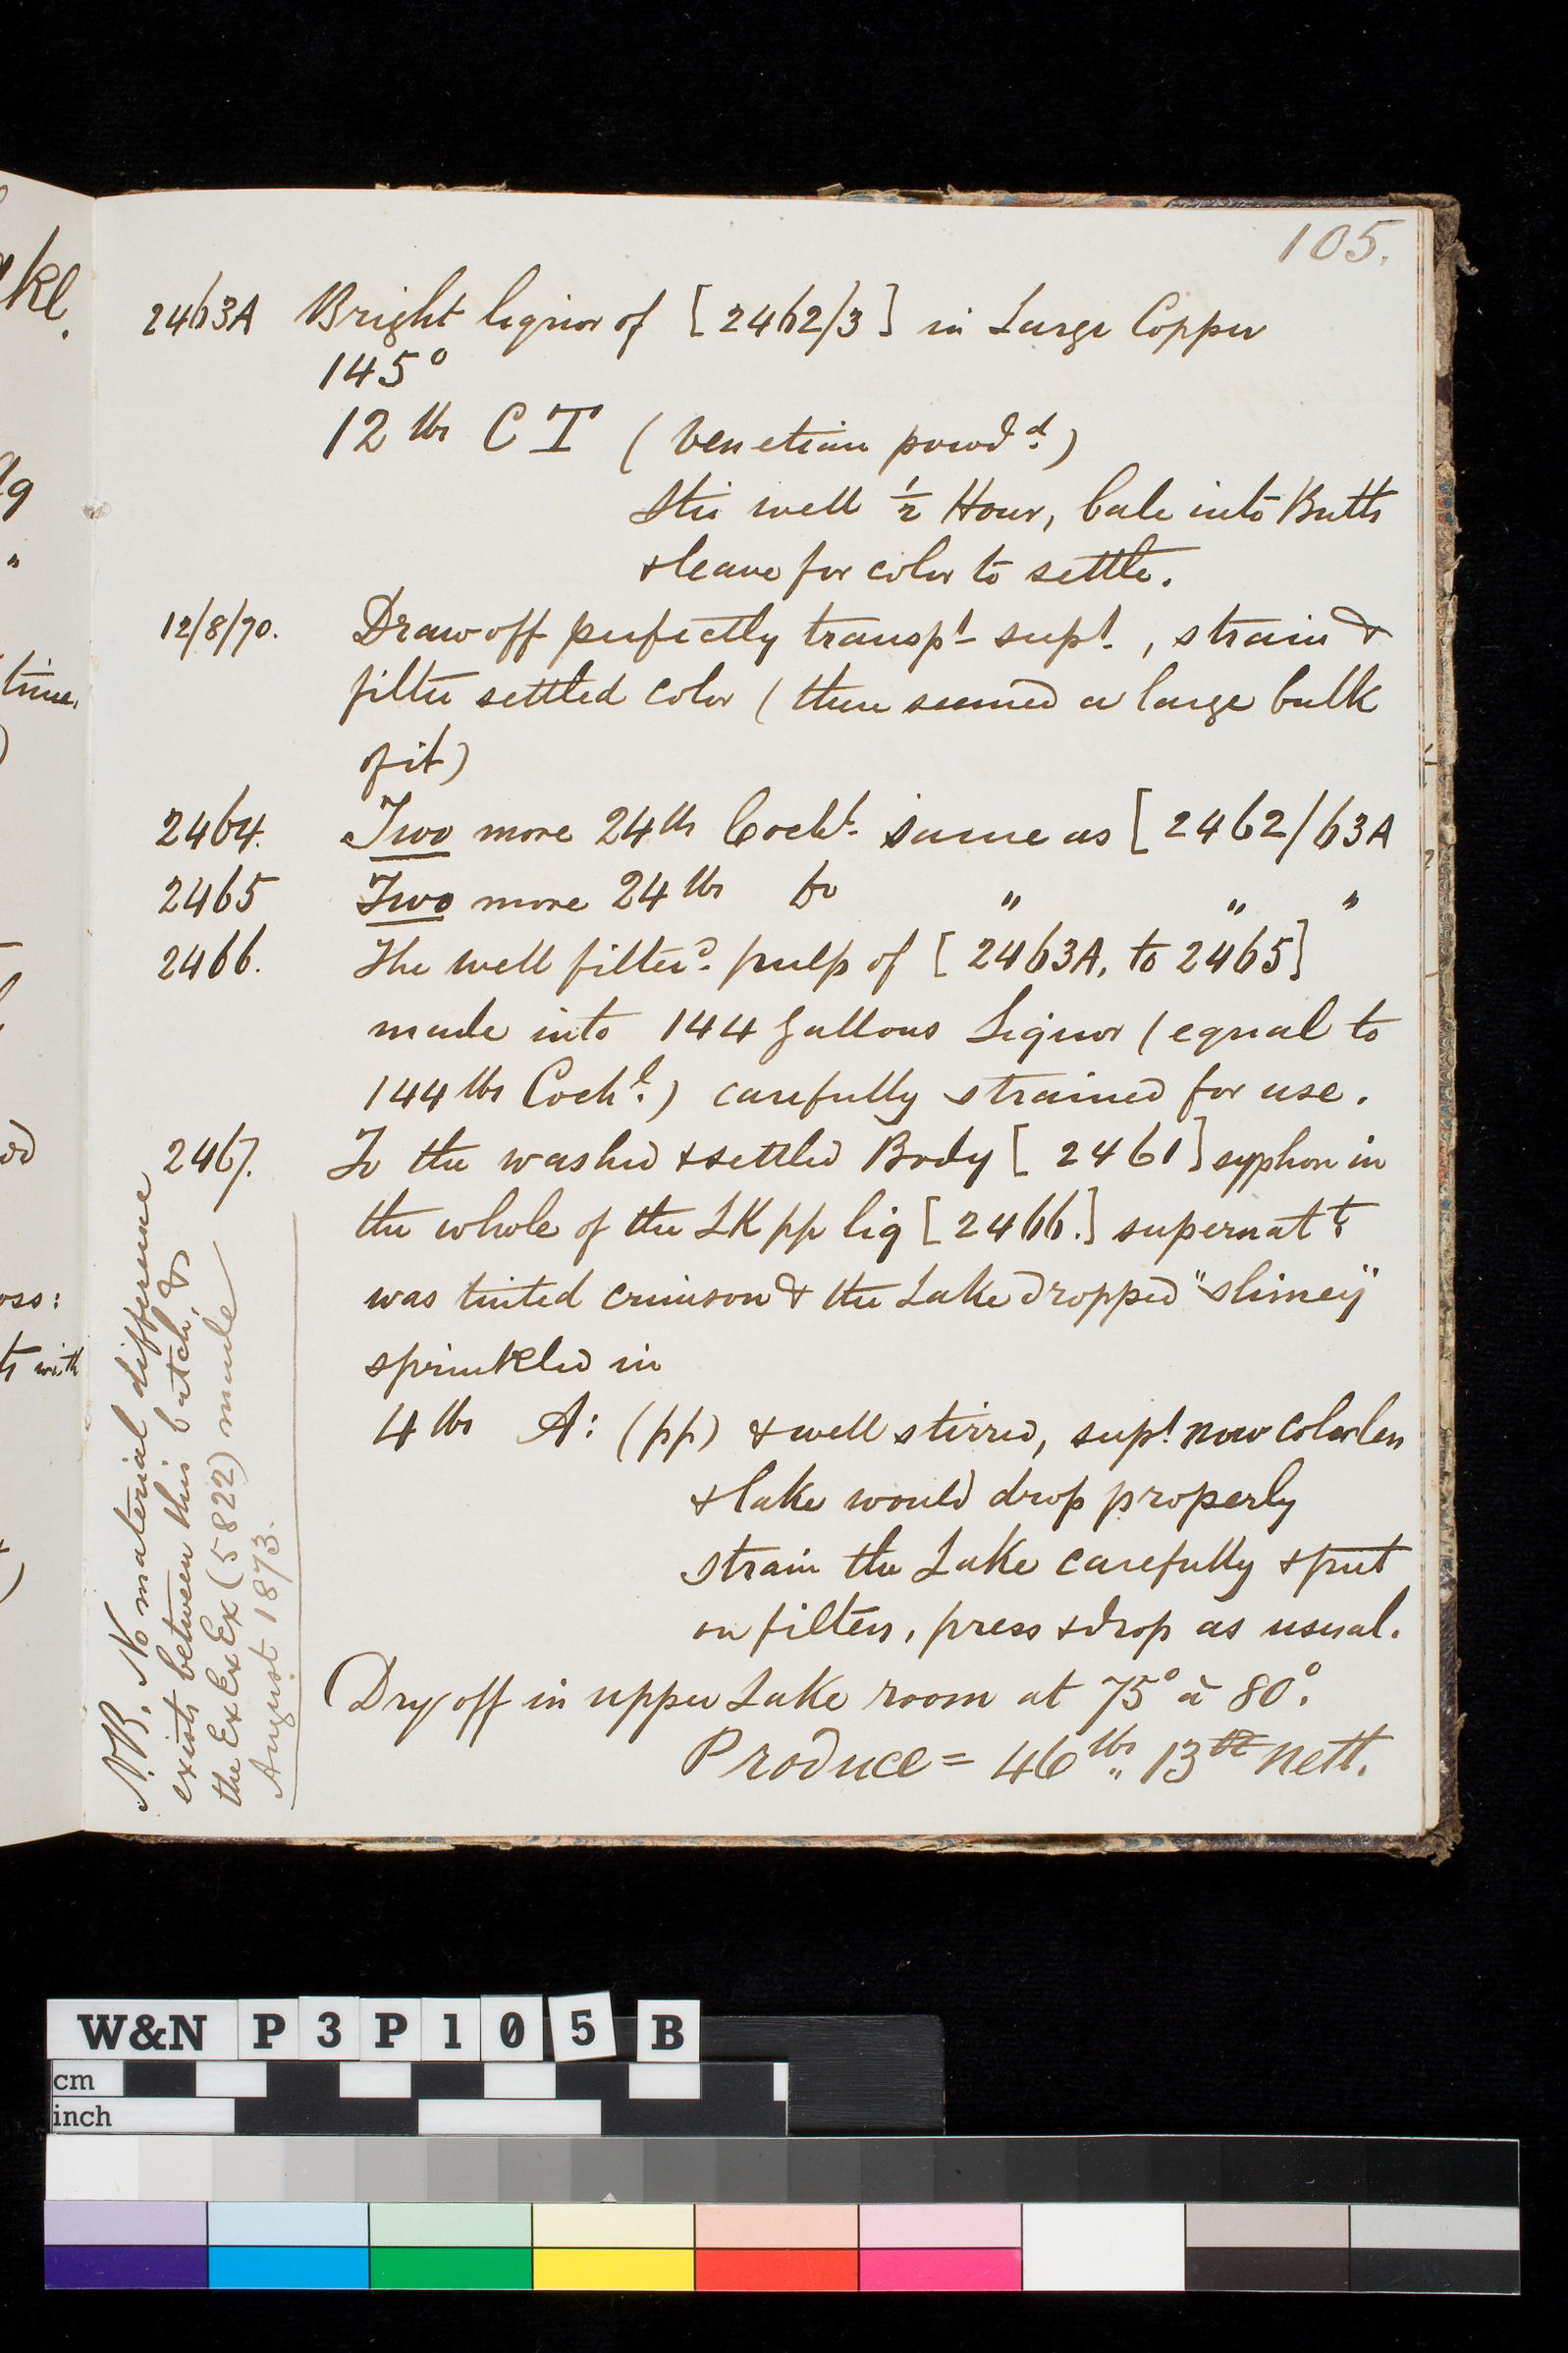 105.
2463A Bright liquor of [2462/3] in Large Copper
145°
12 lbs C T (Venetian powdd.)
Stir well 1/2 Hour, bale into Butts
& leave for color to settle.
12/8/70. Draw off perfectly transpt. supt., strain &
filter settled color (there seemed a large bulk
of it)
2464. Two more 24 lb Cochl. same as [2462/63A
2465 Two more 24 lbs Do " " "
2466. The well filterd. pulp of [2463A, to 2465]
made into 144 Gallons Liquor (equal to
144 lbs Cochl.) carefully strained for use.
2467. To the washed & settled Body [2461] syphon in
the whole of the LK pp liq [2466.] supernatt.
was tinted crimson & the Lake dropped "slimey"
sprinkled in
4 lbs A: (pp) & well stirred, supt. now colorless
& lake would drop properly
strain the Lake carefully & put
on filters, press & drop as usual.
Dry off in upper Lake room at 75° à 80°.
Produce = 46 lbs. 13 nett.
N.B. No material difference
exists between this batch, &
the Ex Ex Ex (5822) made
August 1873.
kl.
g
"
time,
)
oss:
ts with
W&N P3P105 B
cm
inch